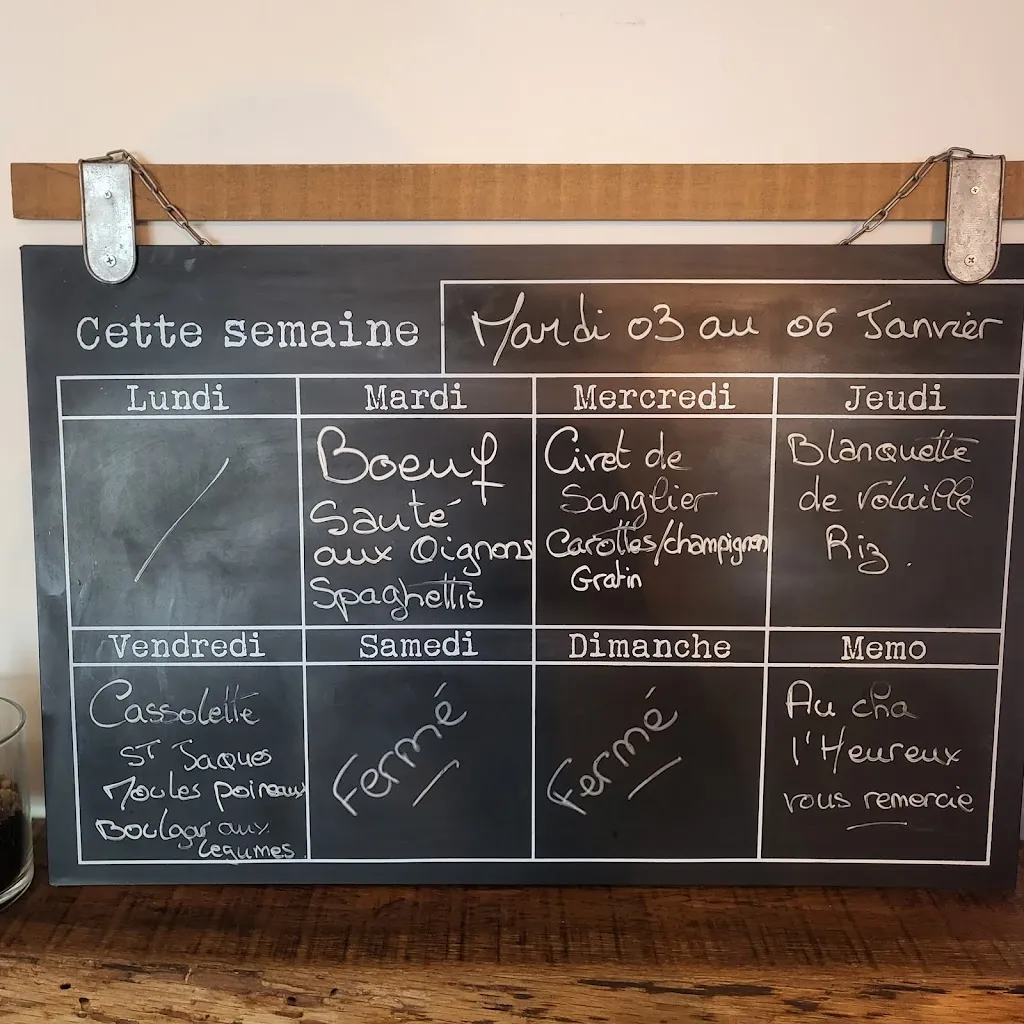 Cette semaine
Mardi 03 au 06 Janvier
Lundi
Mardi
Mercredi
Jeudi
/
Boeuf
Sauté
aux Oignons
Spaghettis
Civet de
Sanglier
Carottes/champignon
Gratin
Blanquette
de volaille
Riz.
Vendredi
Samedi
Dimanche
Memo
Cassolette
ST Jaques
Moules poireaux
Boulgar aux
legumes
Fermé
Fermé
Au cha
l'Heureux
vous remercie